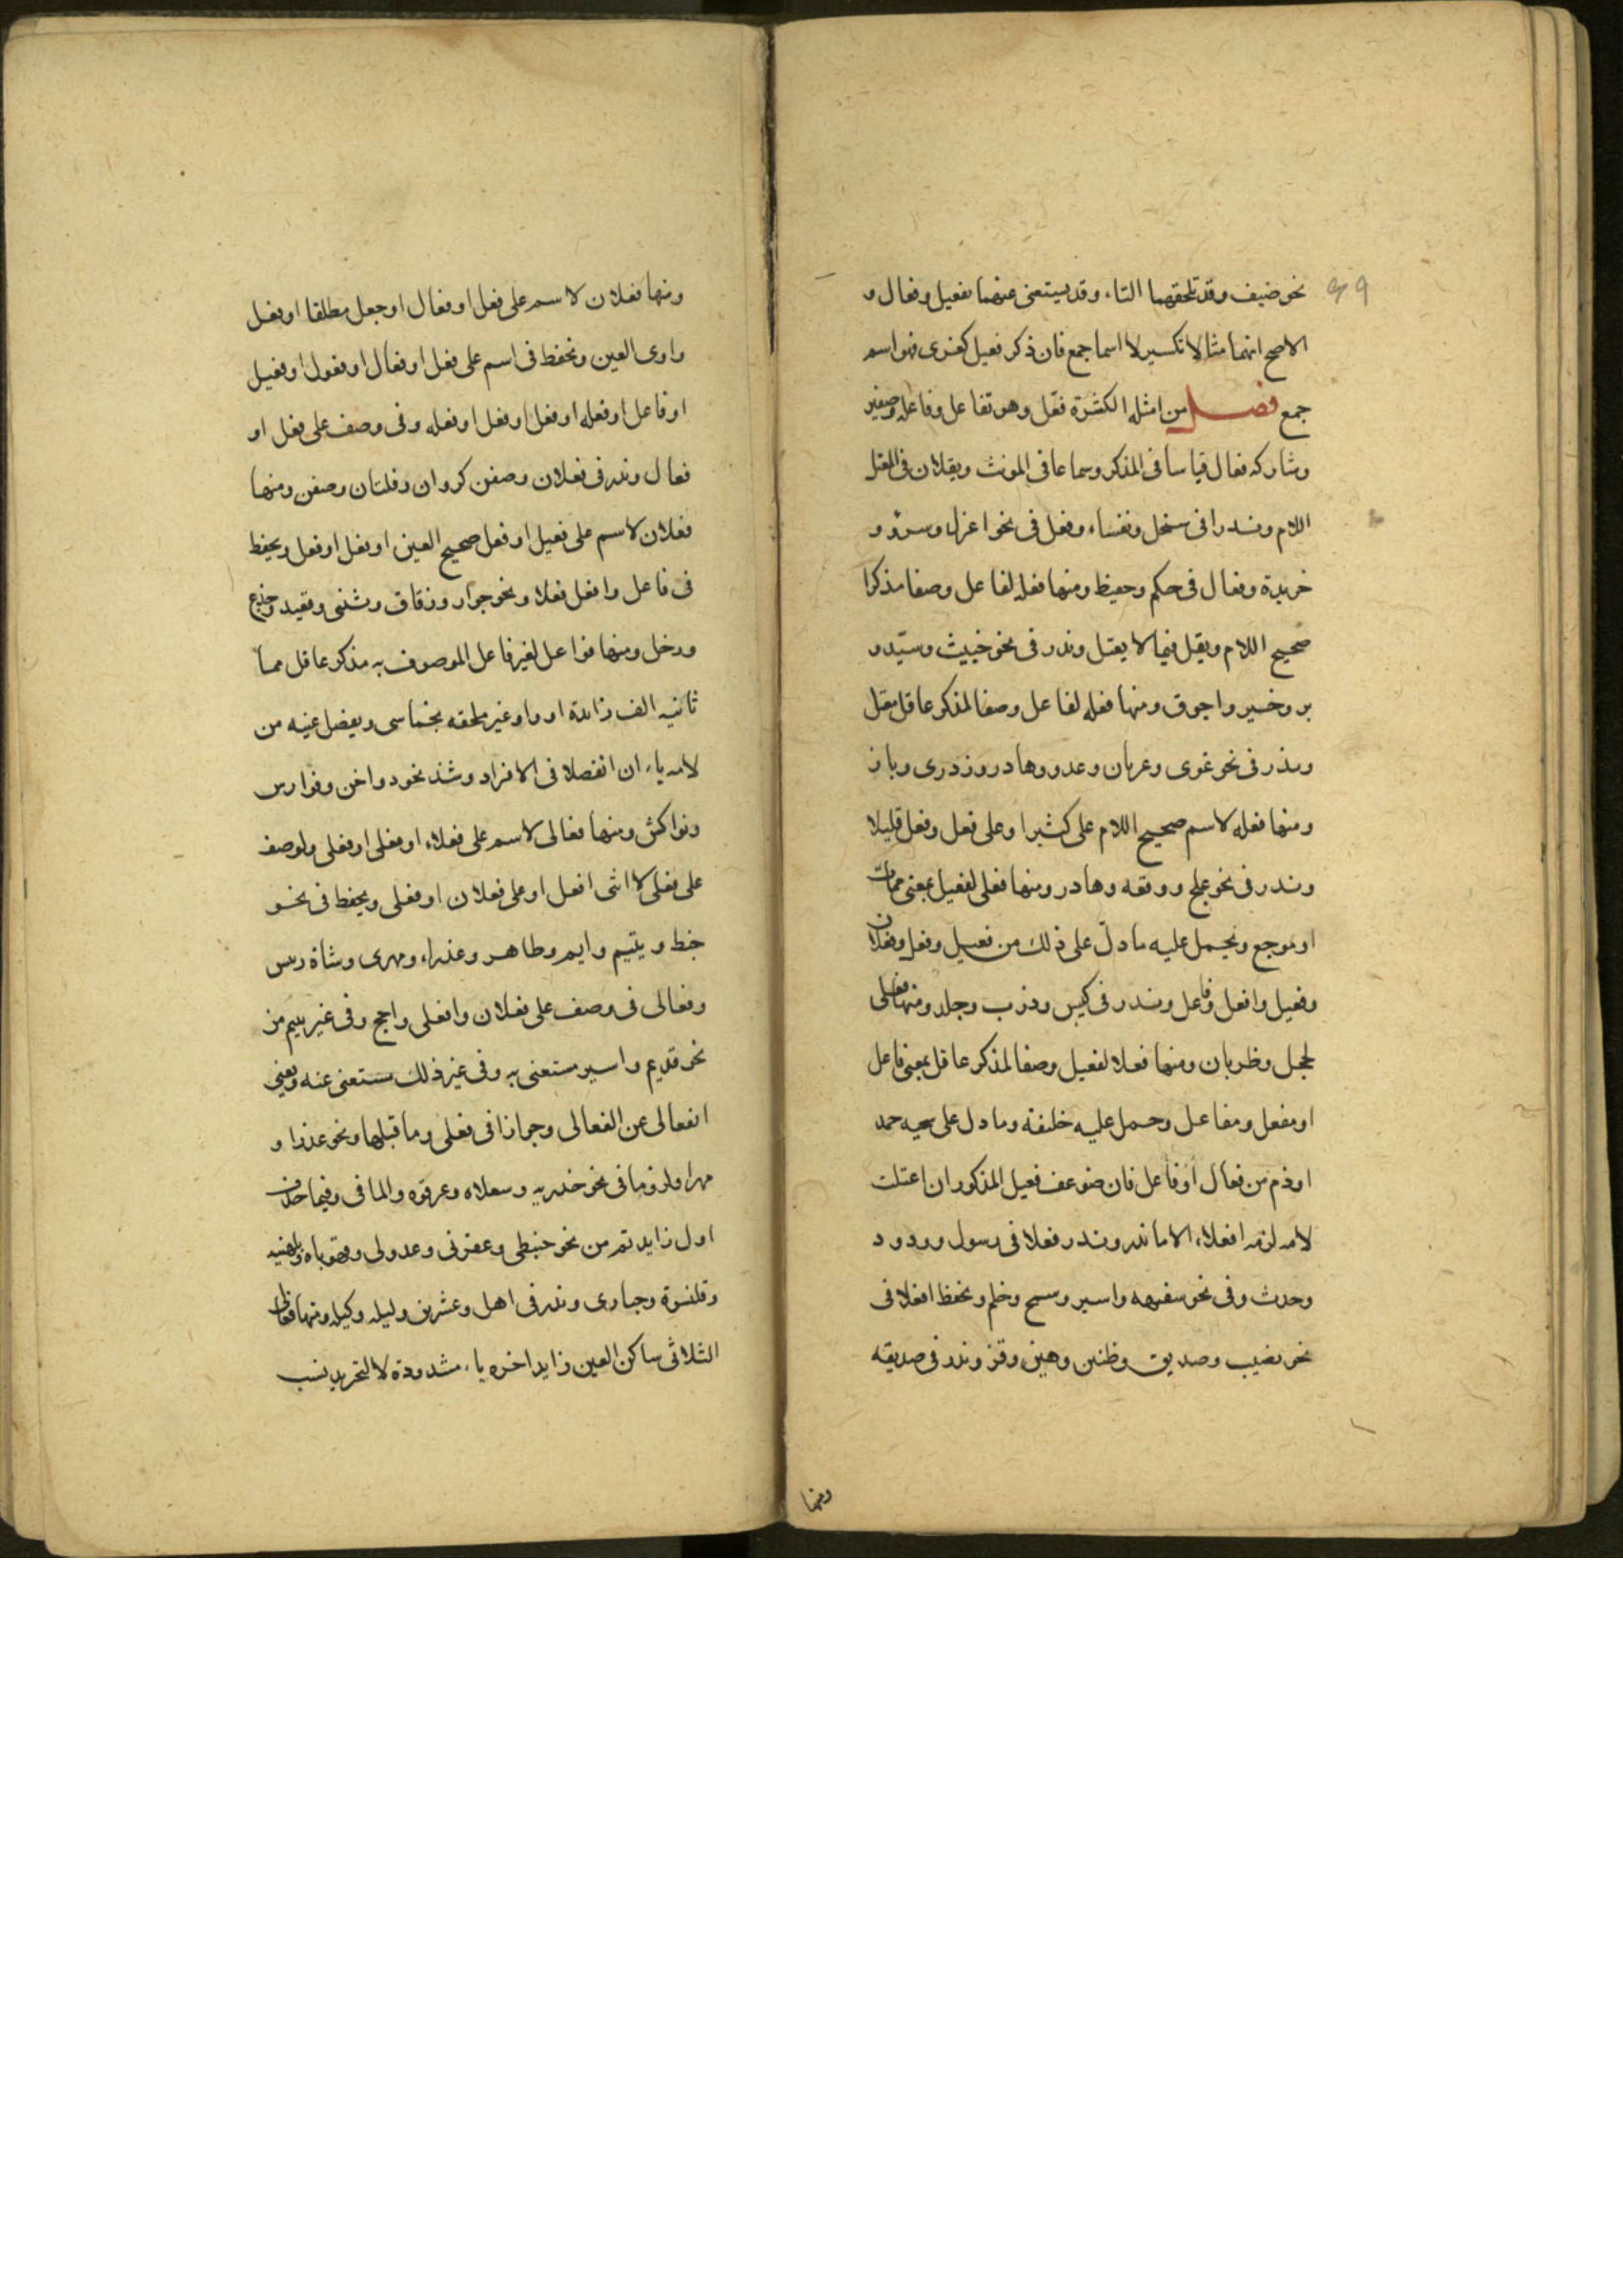 نحو ضيف وقد تلحقهما التاء وقد يستغنى عنهما بفعيل وفعال و
الاصح انهما مثالا تكسير لا اسما جمع فان ذكر فعيل كغزى فهو اسم
جمع فصل من امثله الكثرة فعل وهو لفاعل وفاعله وصفين
وشاركه فعال قياسا فى المذكر وسماعا فى المونث ويقلان فى المعتل
اللام وندرا فى سخل ونفساء وفعل فى نحو اعزل وسرؤ و
خريدة وفعال فى حكم وحفيظ ومنها فعله لفاعل وصفا مذكرا
صحيح اللام ويقل فيما لا يعقل وندر فى نحو خبيث وسيّد و
بر وخير واجوق ومنها فعله لفاعل وصفا لمذكر عاقل معتل
وندر فى نحو غوى وعريان وعدو وهادر وزدرى وباز
ومنها فعله لاسم صحيح اللام على كثيرا وعلى فعل وفعل قليلا
وندر فى نحو علج ووقعه وهادر ومنها فعلى لفعيل بمعنى ممات
او موجع ويحمل عليه ما دلّ على ذلك من فعيل وفعل وفعلان
وفعيل وافعل وفاعل وندر فى كيس وذرب وجلد ومنها فعلى
لحجل وظربان ومنها فعلا لفعيل وصفا لمذكر عاقل بمعنى فاعل
او مفعل ومفاعل وحمل عليه خليفة وما دل على سجيه حمد
او ذم من فعال او فاعل فان ضوعف فعيل المذكور ان اعتلت
لامه لزمه افعلاء الا ما ندر وندر فعلا فى رسول وودود
وحدث وفى نحو سفيهه واسير وسمح وخلم ويحفظ افعلا فى
نحو نصيب وصديق وظنين وهين وقز وندر فى صديقه
ومنها
ومنها فعلان لاسم على فعل او فعال او جعل مطلقا او فعل
واوى العين ويحفظ فى اسم على فعل او فعال او فعول او فعيل
او فاعل او فعله او فعل او فعل او فعله وفى وصف على فعل او
فعال وندر فى فعلان وصفن كروان وفلتان وصفن ومنها
فعلان لاسم على فعيل او فعل صحيح العين او فعل او فعل ويحفظ
فى فاعل وافعل فعلا ونحو جوار وزقاق وثنى وقعيد وجذع
ورخل ومنها فواعل لغير فاعل الموصوف به مذكر عاقل مما
ثانيه الف زايدة او واو غير ملحقه بخماسى ويفصل عينه من
لامه ياء ان انفصلا فى الافراد وشذ نحو دواخن وفوارس
ونواكس ومنها فعالى لاسم على فعلاء او فعلى او فعلى ولوصف
على فعلى لا انثى افعل او على فعلان او فعلى ويحفظ فى نحو
خبط ويتيم وايم وطاهر وعذراء ومهرى وشاة ريس
وفعالى فى وصف على فعلان وافعلى راجح وفى غير يتيم من
نحو قديم واسير مستغنى به وفى غير ذلك مستغنى عنه ويغنى
الفعالى عن الفعالى وجوازا فى فعلى وما قبلها ونحو عذرا و
مهرا ولزوما فى نحو حذريه وسعلاه وعرقوه والماقى وفيما حذف
اول زايديه من نحو حبنطى وعفرنى وعدولى وقهوباه وبلهنيه
وقلنسوة وحبارى وندر فى اهل وعشرين وليله وكيله ومنها فعالى
الثلاثى ساكن العين زايدا اخره ياء مشدودة لا لتجريد نسب